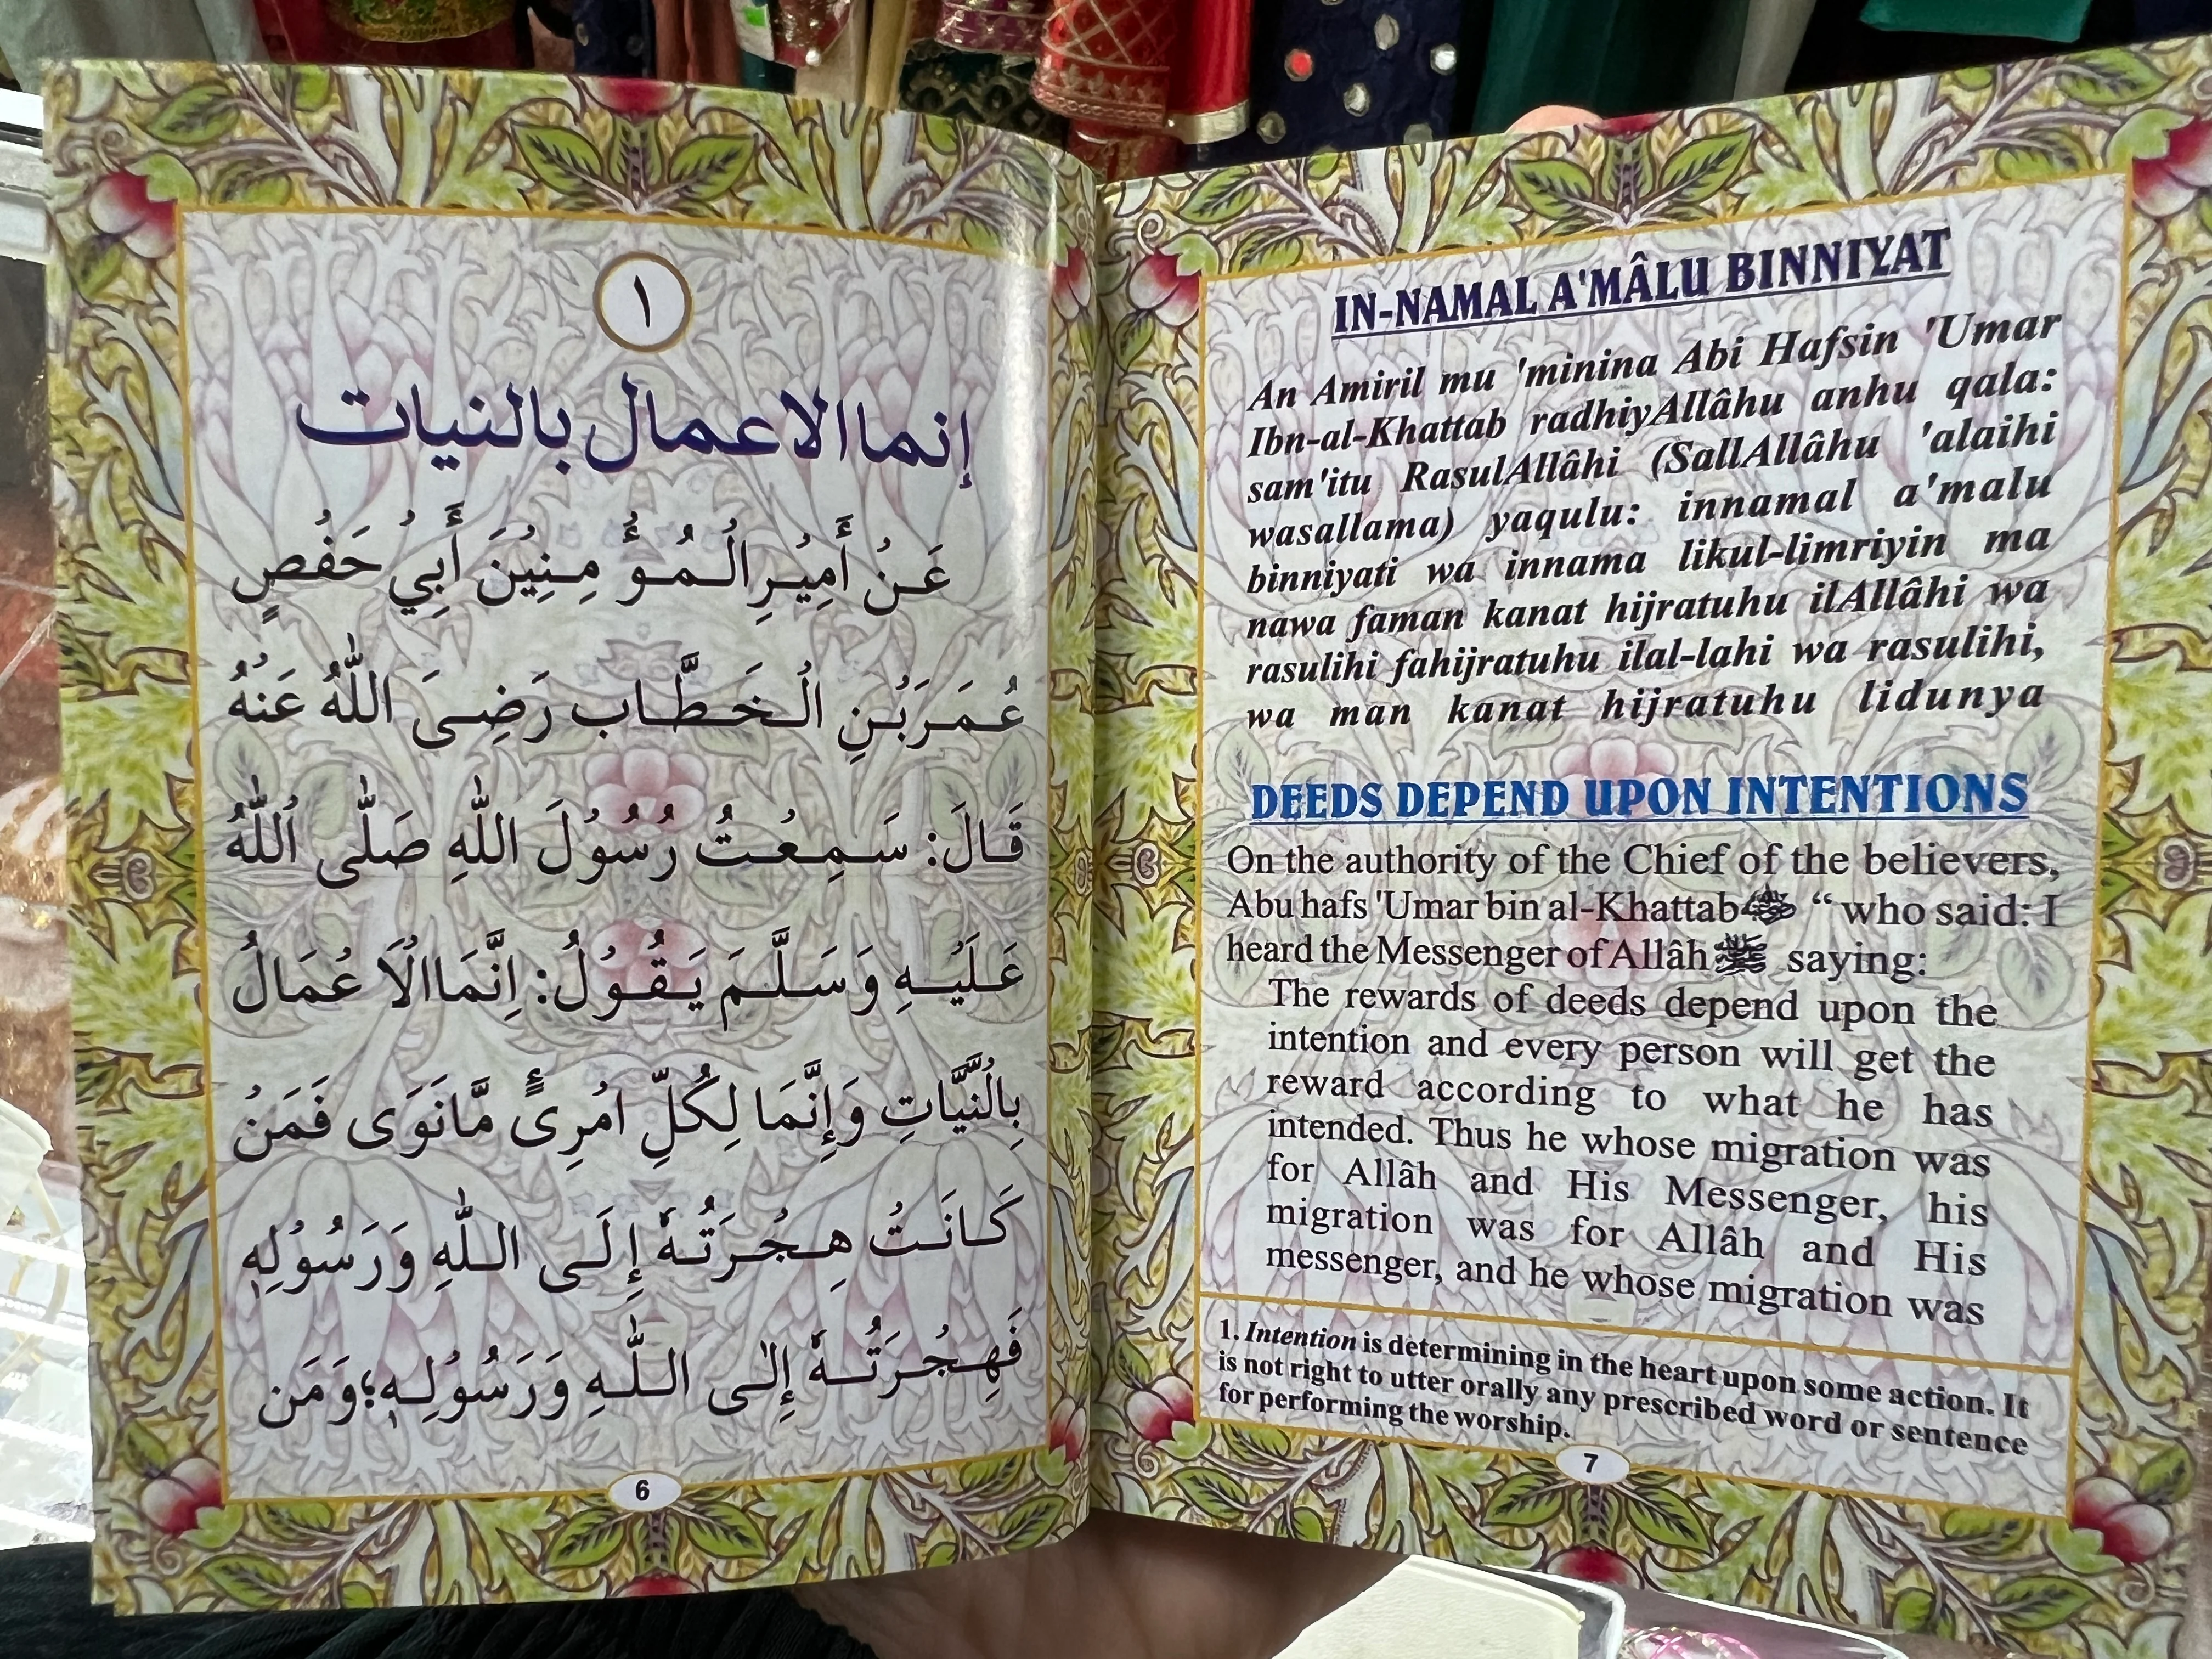 ١
إنما الاعمال بالنيات
عَنْ أَمِيْرِ الْمُؤْ مِنِيْنَ أَبِي حَفْصٍ
عُمَرَ بْنِ الْخَطَّاب رَضِىَ اللّٰهُ عَنْهُ
قَالَ: سَمِعْتُ رُسُوْلَ اللّٰهِ صَلّٰى اللّٰهُ
عَلَيْهِ وَسَلَّمَ يَقُوْلُ: اِنَّمَا الَا عْمَالُ
بِالْنِّيَّاتِ وَإِنَّمَا لِكُلِّ امْرِئٍ مَّانَوَى فَمَنْ
كَانَتْ هِجْرَتُهٗ إِلَى اللّٰهِ وَرَسُوْلِهٖ
فَهِجْرَتُهٗ إِلٰى اللّٰهِ وَرَسُوْلِهٖ؛ وَمَن
6
IN-NAMAL A'MÂLU BINNIYAT
An Amiril mu 'minina Abi Hafsin 'Umar
Ibn-al-Khattab radhiyAllâhu anhu qala:
sam'itu RasulAllâhi (SallAllâhu 'alaihi
wasallama) yaqulu: innamal a'malu
binniyati wa innama likul-limriyin ma
nawa faman kanat hijratuhu ilAllâhi wa
rasulihi fahijratuhu ilal-lahi wa rasulihi,
wa man kanat hijratuhu lidunya
DEEDS DEPEND UPON INTENTIONS
On the authority of the Chief of the believers,
Abu hafs 'Umar bin al-Khattab “who said: I
heard the Messenger of Allâh ﷺ saying:
The rewards of deeds depend upon the
intention and every person will get the
reward according to what he has
intended. Thus he whose migration was
for Allâh and His Messenger, his
migration was for Allâh and His
messenger, and he whose migration was
1. Intention is determining in the heart upon some action. It
is not right to utter orally any prescribed word or sentence
for performing the worship.
7